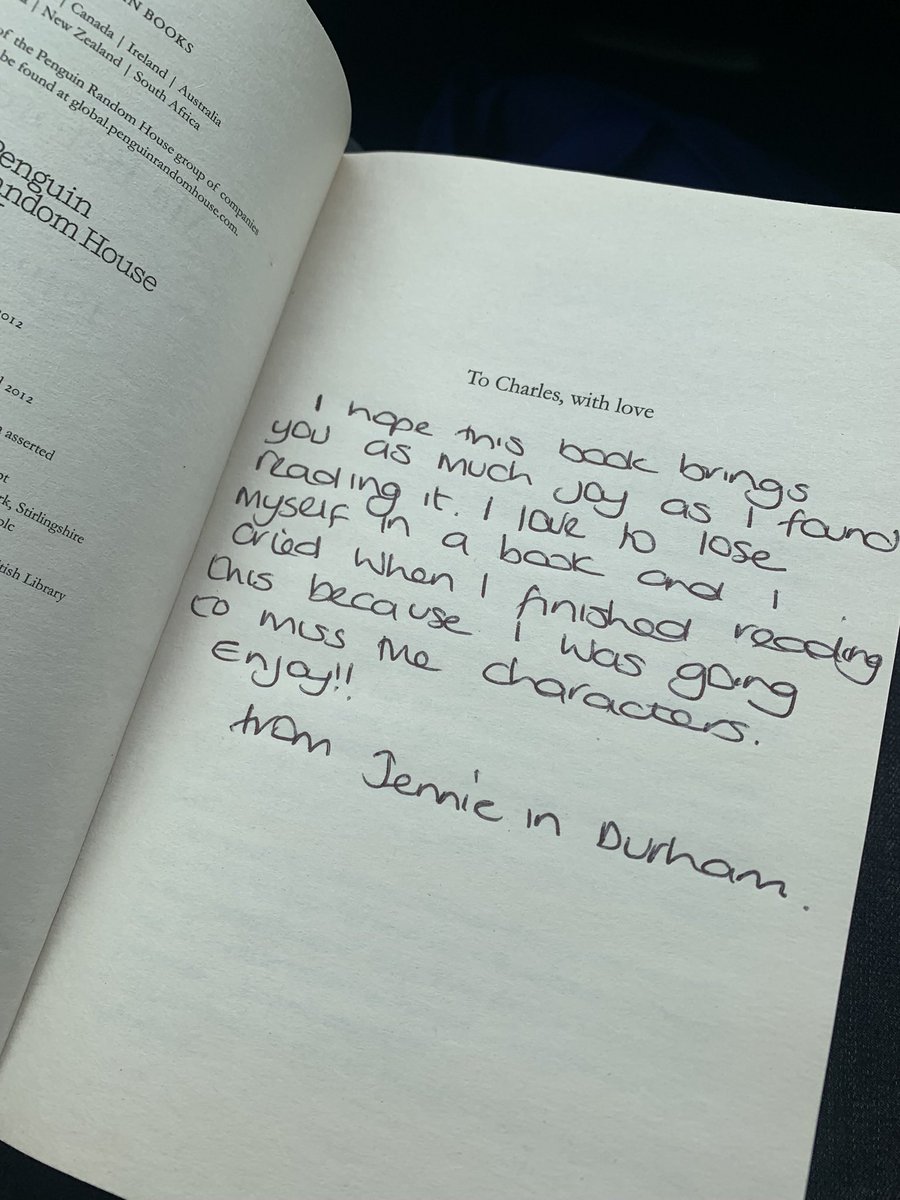 N BOOKS
| Canada | Ireland | Australia
| New Zealand | South Africa
of the Penguin Random House group of companies
be found at global.penguinrandomhouse.com.
Penguin
Random House
2012
2012
asserted
Stirlingshire
plc
Library
To Charles, with love
I hope this book brings
you as much joy as I found
reading it. I love to lose
myself in a book and I
cried when I finished reading
this because I was going
to miss the characters.
Enjoy!!
from Jennie in Durham.